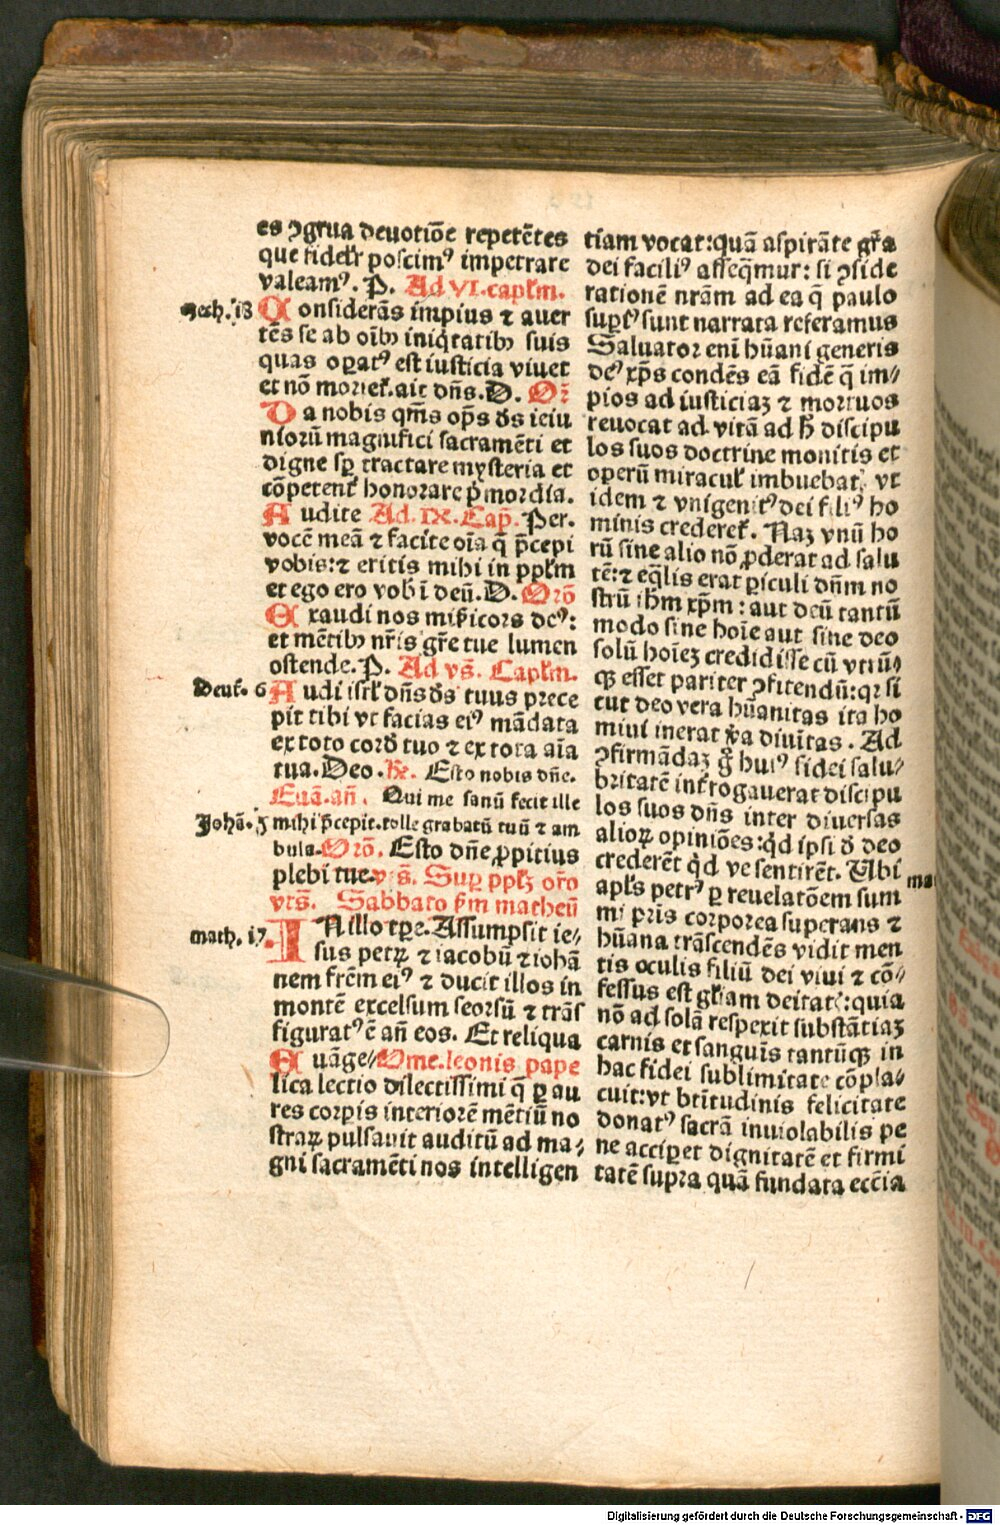 es ꝯgrua deuotiõe repetẽtes
que fidelr̃ poscimꝰ impetrare
valeamꝰ. P. Ad VI. capl̃m.
Zech. 18 Considerãs impius ⁊ auer
tẽs se ab oĩbꝫ iniq̃tatibꝫ suis
quas opatꝰ est iusticia viuet
et nõ moriet̃. ait dñs. D. Or̃
Da nobis qm̃s op̃s d̃s ieiu
niorũ magnifici sacramẽti et
digne sp̃ tractare mysteria et
cõpetent̃ honorare p̃mordia.
Audite Ad. IX. Cap̃. Per.
vocẽ meã ⁊ facite oĩa q̃ p̃cepi
vobis: ⁊ eritis mihi in ppl̃m
et ego ero vob̃ ĩ deũ. D. Orõ
Exaudi nos mis̃icors deꝰ:
et mẽtibꝫ nr̃is gr̃e tue lumen
ostende. P. Ad vs̃. Capl̃m.
Deut. 6 Audi isrl̃ dñs d̃s tuus prece
pit tibi vt facias eiꝰ mãdata
ex toto cord̃ tuo ⁊ ex tota aĩa
tua. Deo. R̃. Esto nobis dñe.
Euã. añ. Qui me sanũ fecit ille
Johã. 5 mihi p̃cepit. tolle grabatũ tuũ ⁊ am
bula. Orõ. Esto dñe ꝓpitius
plebi tue. vt s̃. Suꝑ pplꝫ orõ
vt s̃. Sabbato s̃m matheũ
math. 17. IN illo tꝑe. Assumpsit ie⸗
sus petrꝝ ⁊ iacobũ ⁊ iohã
nem frẽm eiꝰ ⁊ ducit illos in
montẽ excelsum seorsũ ⁊ trãs
figuratꝰ ẽ añ eos. Et reliqua
Euãge⸗ Ome. leonis pape
lica lectio dilectissimi q̃ ꝑ au
res corpis interiorẽ mẽtiũ no
straꝝ pulsauit auditũ ad ma⸗
gni sacramẽti nos intelligen
tiam vocat: quã aspirãte gr̃a
dei faciliꝰ asseq̃mur: si ꝯside
rationẽ nr̃am ad ea q̃ paulo
suꝑiꝰ sunt narrata referamus
Saluator enĩ hũani generis
deꝰ xp̃s condẽs eã fidẽ q̃ im⸗
pios ad iusticiaꝫ ⁊ mortuos
reuocat ad vitã ad h̃ discipu
los suos doctrine monitis et
operũ miracul̃ imbuebat, vt
idem ⁊ vnigenitꝰ dei filiꝰ ho
minis crederet̃. Naꝫ vnũ ho
rũ sine alio nõ ꝓderat ad salu
tẽ: ⁊ eq̃lis erat ꝑiculi dñm no
strũ ihm̃ xp̃m: aut deũ tantũ
modo sine hoĩe aut sine deo
solũ hoĩeꝫ credidisse cũ vtrũ⸗
qꝫ esset pariter ꝯfitendũ: qꝛ si
cut deo vera hũanitas ita ho
mini inerat ṽa diuĩtas. Ad
ꝯfirmãdaꝫ g̃ huiꝰ fidei salu⸗
britatẽ int̃rogauerat discipu
los suos dñs inter diuersas
alioꝝ opiniões: qd̃ ipsi d̃ deo
crederẽt qd̃ ve sentirẽt. Vbi
apl̃s petrꝰ ꝑ reuelatõem sum
mi pr̃is corporea superans ⁊
hũana trãscendẽs vidit men
tis oculis filiũ dei viui ⁊ cõ⸗
fessus est gl̃iam deitatꝭ: quia
nõ ad solã respexit substãtiaꝫ
carnis et sanguĩs tantũqꝫ in
hac fidei sublimitate cõpla⸗
cuit: vt btĩtudinis felicitate
donatꝰ sacrã inuiolabilis pe
tre acciꝑet dignitatẽ et firmi
tatẽ supra quã fundata eccĩa